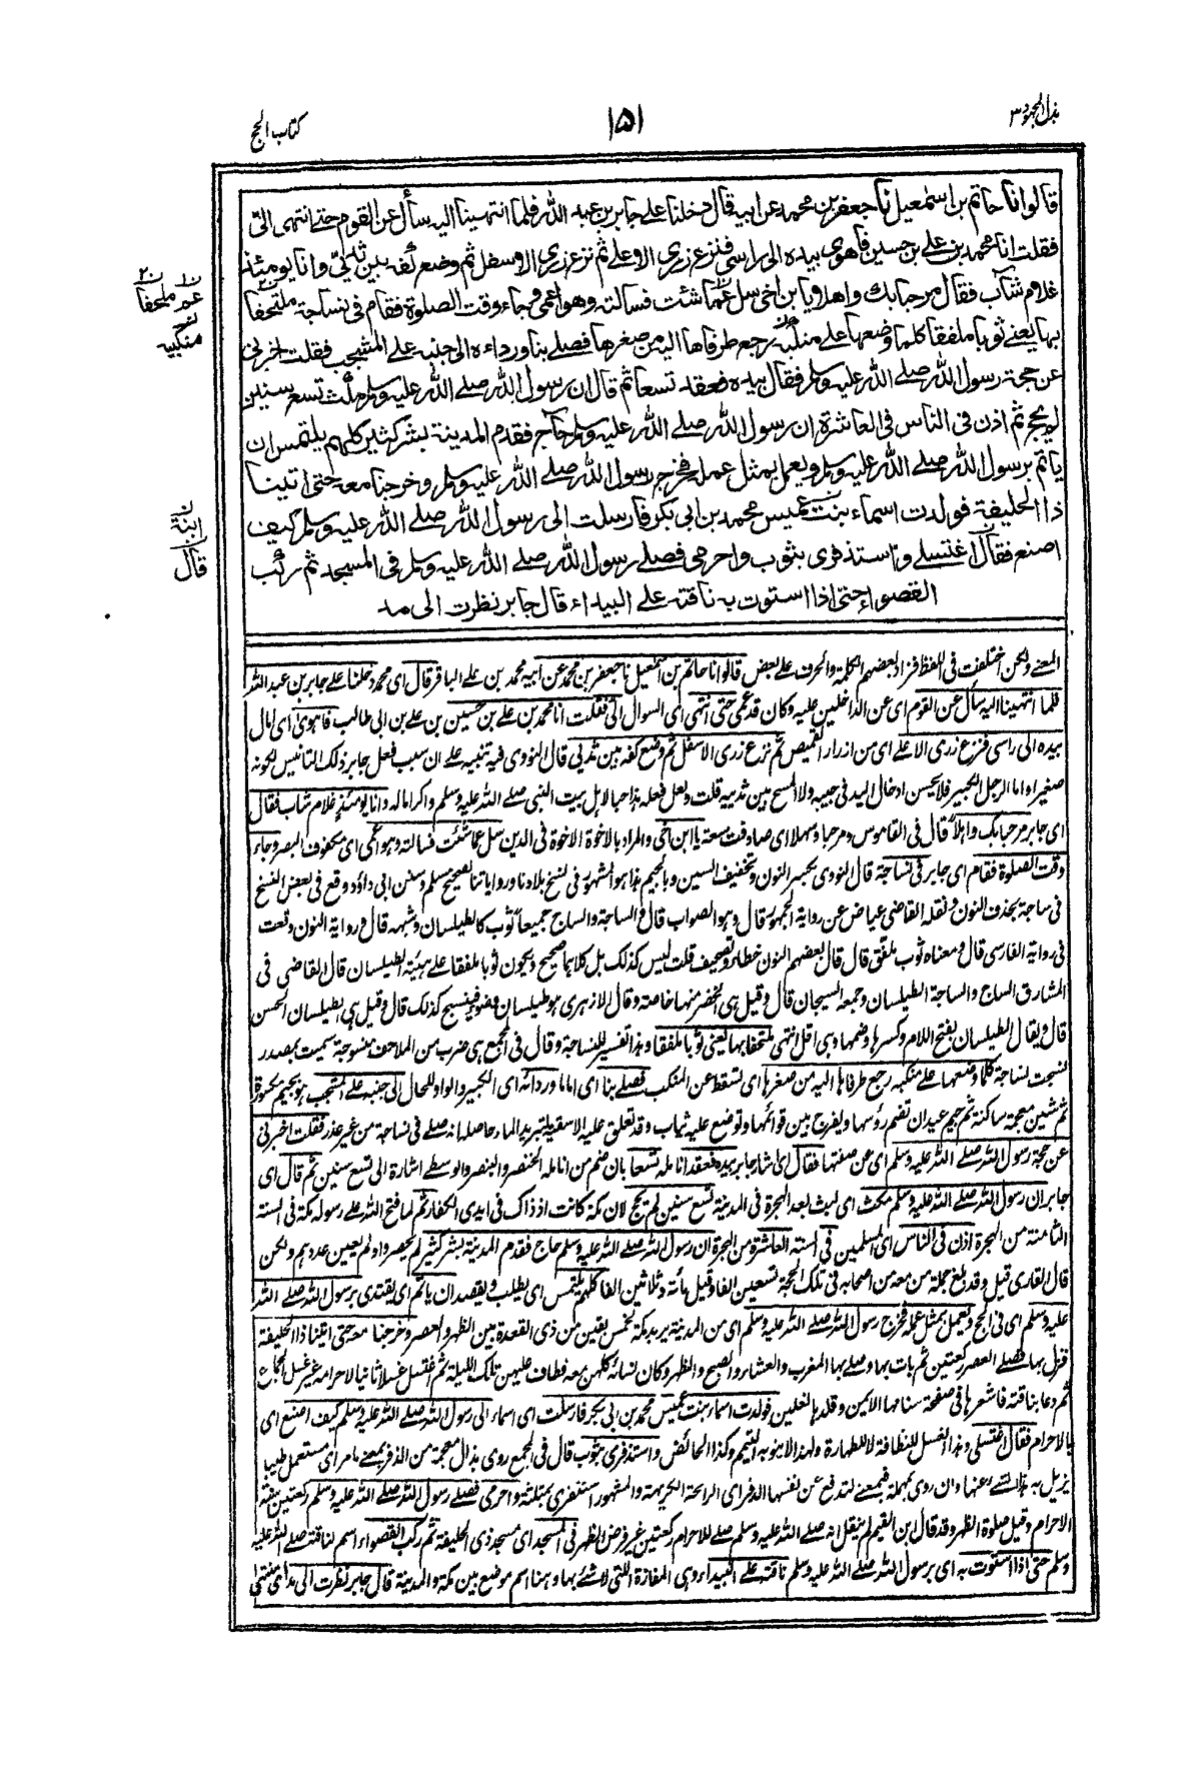 بذل المجهود ٣
١٥١
كتاب الحج
قالوا نا حاتم بن اسمعيل نا جعفر بن محمد عن ابيه قال دخلنا على جابر بن عبد الله فلما انتهينا اليه سأل عن القوم حتى انتهى الى
فقلت انا محمد بن على بن حسين فاهوى بيده الى راسى فنزع زرى الاعلى ثم نزع زرى الاسفل ثم وضع كفه بين ثديى وانا يومئذ
غلام شاب فقال مرحبا بك واهلا يا بن اخى سل عما شئت فسالته وهو اعمى وجاء وقت الصلوة فقام فى نساجة ملتحفا
بها يعنى ثوبا ملفقا كلما وضعها على منكبه رجع طرفاها اليه من صغرها فصلى بنا ورداءه الى جنبه على المشجب فقلت اخبرنى
عن حجة رسول الله صلى الله عليه وسلم فقال بيده فعقد تسعا ثم قال ان رسول الله صلى الله عليه وسلم مكث تسع سنين
لم يحج ثم اذن فى الناس فى العاشرة ان رسول الله صلى الله عليه وسلم حاج فقدم المدينة بشر كثير كلهم يلتمس ان
ياتم برسول الله صلى الله عليه وسلم ويعمل بمثل عمله فخرج رسول الله صلى الله عليه وسلم وخرجنا معه حتى اتينا
ذا الحليفة فولدت اسماء بنت عميس محمد بن ابى بكر فارسلت الى رسول الله صلى الله عليه وسلم كيف
اصنع فقال اغتسلى واستذفرى بثوب واحرمى فصلى رسول الله صلى الله عليه وسلم فى المسجد ثم ركب
القصواء حتى اذا استوت به ناقته على البيداء قال جابر نظرت الى مد
عم ملحفا
منكبيه
ابنة
قال
المعنى ولكن اختلفت فى اللفظ فزاد بعضهم الكلمة والحرف على بعض قالوا نا حاتم بن اسمعيل نا جعفر بن محمد عن ابيه محمد بن على الباقر قال اى محمد دخلنا على جابر بن عبد الله
فلما انتهينا اليه سأل عن القوم اى عن الداخلين عليه وكان قد عمى حتى انتهى اى السوال الى فقلت انا محمد بن على بن حسين بن على بن ابى طالب فاهوى اى امال
بيده الى راسى فنزع زرى الاعلى اى من ازرار القميص ثم نزع زرى الاسفل ثم وضع كفه بين ثديى قال النووى فيه تنبيه على ان سبب فعل جابر ذلك التانيس لكونه
صغيرا واما الرجل الكبير فلا يحسن ادخال اليد فى جيبه ولا المسح بين ثدييه قلت ولعل فعله هذا حبا لاهل بيت النبى صلى الله عليه وسلم واكراما له وانا يومئذ غلام شاب فقال
اى جابر مرحبا بك واهلا قال فى القاموس ومرحبا وسهلا اى صادفت سعة يا ابن اخى والمراد بالاخوة الاخوة فى الدين سل عما شئت فسالته وهو اعمى اى مكفوف البصر وجاء
وقت الصلوة فقام اى جابر فى نساجة قال النووى بكسر النون وتخفيف السين وبالجيم هذا هو المشهور فى نسخ بلادنا ورواياتنا لصحيح مسلم وسنن ابى داؤد ووقع فى بعض النسخ
فى ساجة بحذف النون ونقله القاضى عياض عن رواية الجمهور قال وهو الصواب قال والساجة والساج جميعا ثوب كالطيلسان وشبهه قال ورواية النون وقعت
فى رواية الفارسى قال ومعناه ثوب ملفق قال قال بعضهم النون خطاء وتصحيف قلت ليس كذلك بل كلاهما صحيح ويكون ثوبا ملفقا على هيئة الطيلسان قال القاضى فى
المشارق الساج والساجة الطيلسان وجمعه السيجان قال وقيل هى الخضر منها خاصة وقال الازهرى هو طيلسان مقور ينسج كذلك قال وقيل هى الطيلسان الحسن
قال ويقال الطيلسان بفتح اللام وكسرها وضمها وهى اقل انتهى ملتحفا بها يعنى ثوبا ملفقا وهذا تفسير للنساجة وقال فى المجمع هى ضرب من الملاحف منسوجة سميت بمصدر
نسجت نساجة كلما وضعها على منكبه رجع طرفاها اليه من صغرها اى تسقط عن المنكب فصلى بنا اى اماما ورداءه اى الكبير والواو للحال الى جنبه على المشجب هو بجيم مكسورة
ثم شين معجمة ساكنة ثم جيم عيدان تضم رؤسها ويفرج بين قوائمها وتوضع عليه ثياب وقد تعلق عليه الاسقية لتبريد الماء حاصله انه صلى فى نساجة من غير عذر فقلت اخبرنى
عن حجة رسول الله صلى الله عليه وسلم اى عن صفتها فقال اى اشار جابر بيده فعقد انامله تسعا بان ضم من انامله الخنصر والبنصر والوسطى اشارة الى تسع سنين ثم قال اى
جابر ان رسول الله صلى الله عليه وسلم مكث اى لبث بعد الهجرة فى المدينة تسع سنين لم يحج لان مكة كانت اذ ذاك فى ايدى الكفار ثم لما فتح الله على رسوله مكة فى السنة
الثامنة من الهجرة اذن فى الناس اى المسلمين فى السنة العاشرة من الهجرة ان رسول الله صلى الله عليه وسلم حاج فقدم المدينة بشر كثير لم يحصر واو لم يعين عددهم ولكن
قال القارى قيل وقد بلغ جملة من معه من اصحابه فى تلك الحجة تسعين الفا وقيل مأئة وثلاثين الفا كلهم يلتمس اى يطلب ويقصد ان ياتم اى يقتدى برسول الله صلى الله
عليه وسلم اى فى الحج ويعمل بمثل عمله فخرج رسول الله صلى الله عليه وسلم اى من المدينة يريد مكة لخمس بقين من ذى القعدة بين الظهر والعصر وخرجنا معه حتى اتينا ذا الحليفة
فنزل بها فصلى العصر ركعتين ثم بات بها وصلى بها المغرب والعشاء والصبح والظهر وكان نساءه كلهن معه فطاف عليهن تلك الليلة ثم اغتسل غسلا ثانيا لاحرامه غير غسل الجماع
ثم دعا بناقته فاشعرها فى صفحة سنامها الايمن وقلدها بنعلين فولدت اسماء بنت عميس محمد بن ابى بكر فارسلت اى اسماء الى رسول الله صلى الله عليه وسلم كيف اصنع اى
بالاحرام فقال اغتسلى وهذا الغسل للنظافة لا للطهارة ولهذا لا ينوبه التيمم وكذا الحائض واستذفرى بثوب قال فى المجمع روى بذال معجمة من الذفر بمعنى ما مر اى مستعمل طيبا
يزيل به هذا الشئ عنها وان روى بمهملة فبمعنى لتدفع عن نفسها الدفر اى الرائحة الكريهة والمشهور استثفرى بمثلثة واحرمى فصلى رسول الله صلى الله عليه وسلم ركعتين سنة
الاحرام وقيل صلوة الظهر وقد قال ابن القيم لم ينقل انه صلى الله عليه وسلم صلى للاحرام ركعتين غير فرض الظهر فى المسجد اى مسجد ذى الحليفة ثم ركب القصواء اسم لناقته صلى الله عليه
وسلم حتى اذا استوت به اى برسول الله صلى الله عليه وسلم ناقته على البيداء وهى المفازة اللتى لا شئ بها وهنا اسم موضع بين مكة والمدينة قال جابر نظرت الى مد اى منتهى